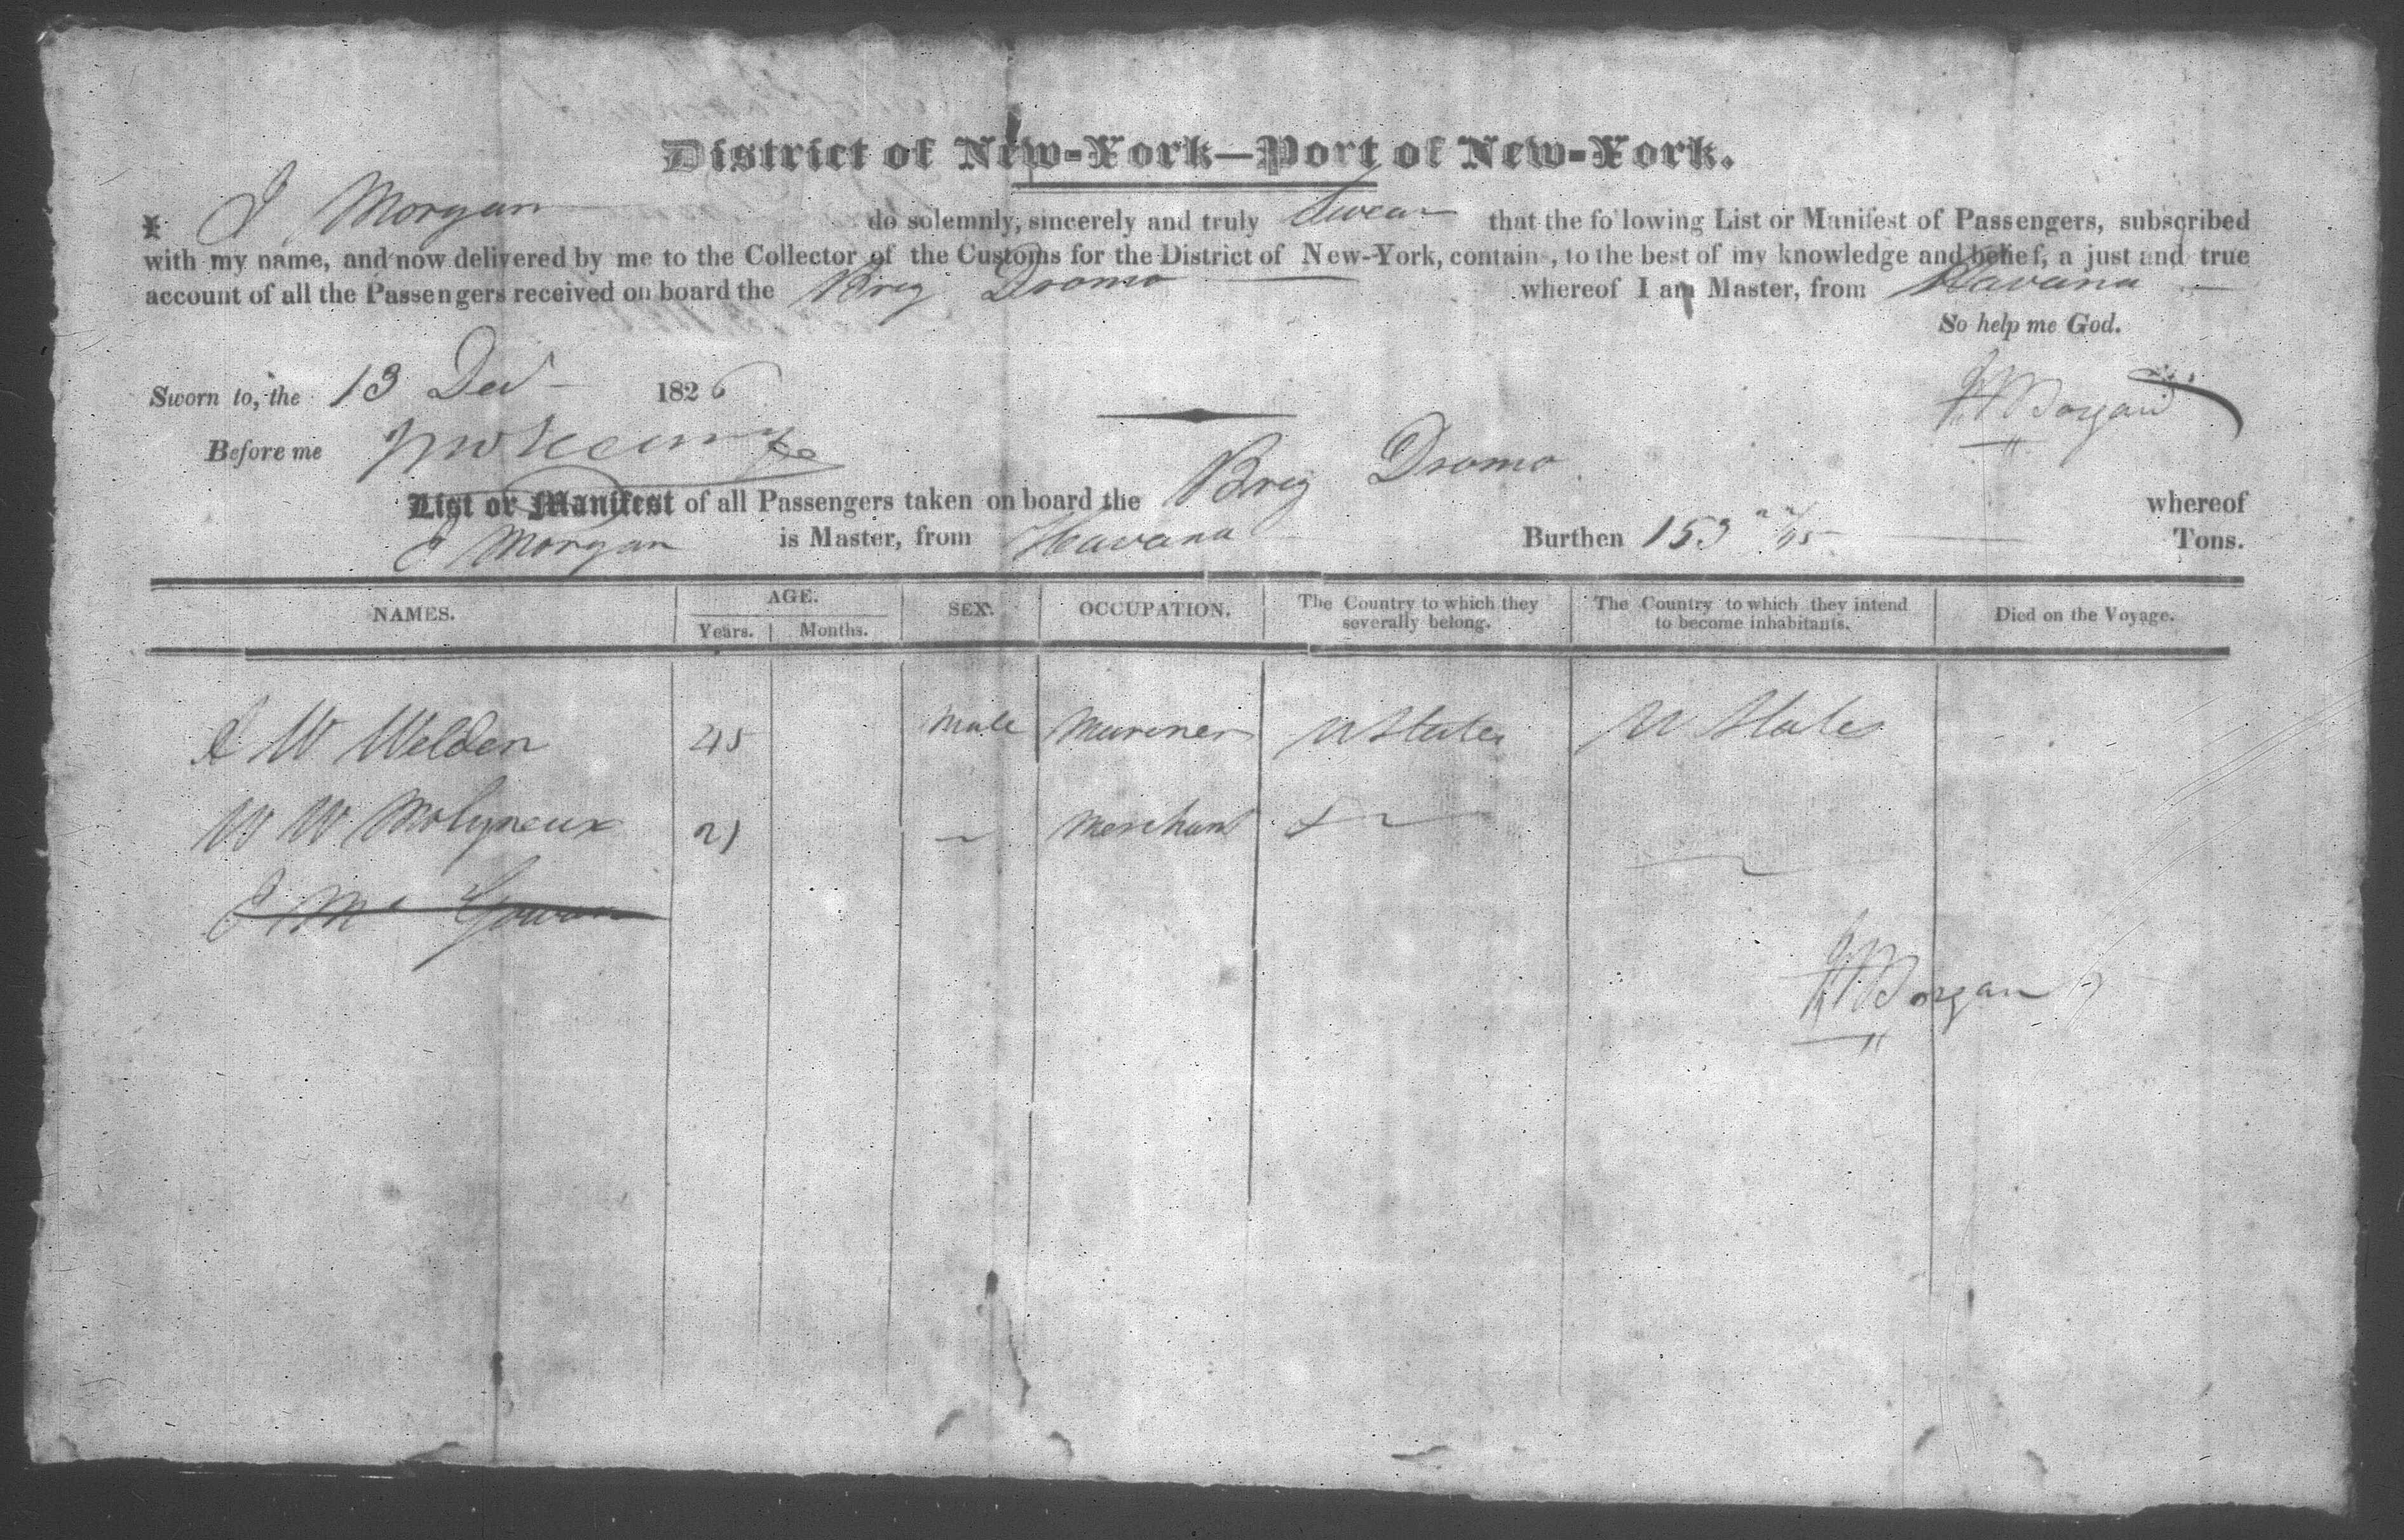 District of New-York—Port of New-York.
I J Morgan do solemnly, sincerely and truly Swear that the fo lowing List or Manifest of Passengers, subscribed
with my name, and now delivered by me to the Collector of the Customs for the District of New-York, contains, to the best of my knowledge and belief, a just and true
account of all the Passengers received on board the Brig Dromo whereof I am Master, from Havana
So help me God.
Sworn to, the 13 Dec 1826
J Morgan
Before me
List or Manifest of all Passengers taken on board the Brig Dromo whereof
J Morgan is Master, from Havana Burthen 153 Tons.
NAMES. AGE. SEX. OCCUPATION. The Country to which they severally belong. The Country to which they intend to become inhabitants. Died on the Voyage.
Years. Months.
J W Welden 45 Male Mariner U States U States
W W Molyneux 21 Merchant
J Mc Gowan
J Morgan